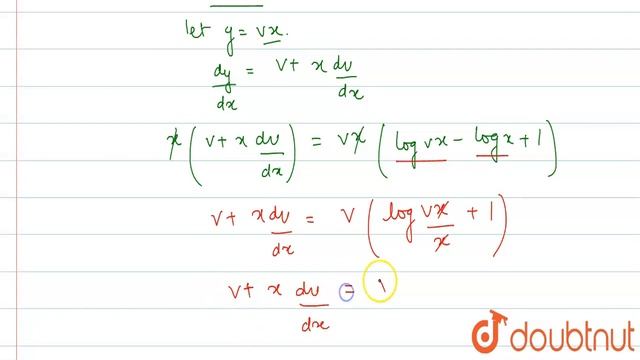 let y = vx.
dy/dx = v + x dv/dx
x(v + x dv/dx) = vx(log vx - log x + 1)
v + x dv/dx = v(log vx/x + 1)
v + x dv/dx =
doubtnut